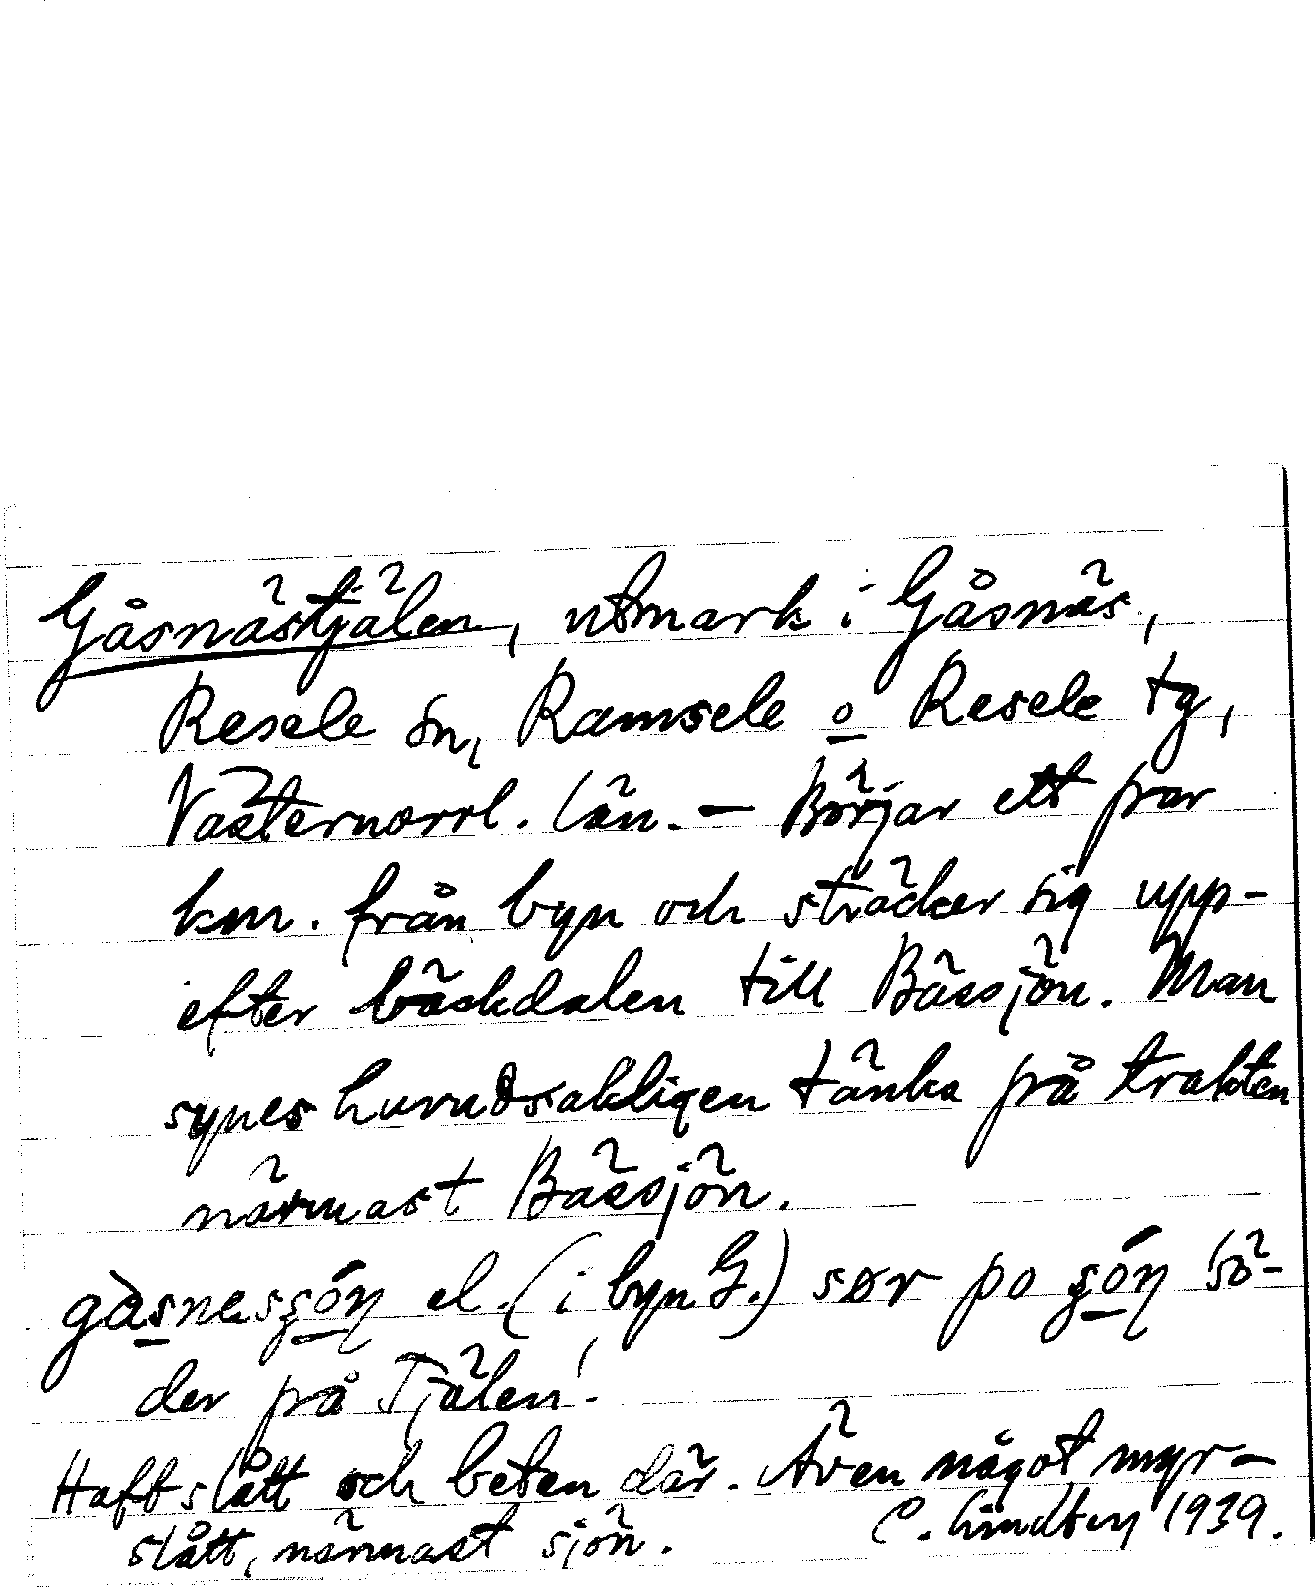 Gåsnästjälen, utmark i Gåsnäs,
Resele sn, Ramsele o Resele tg,
Västernorrl. län. – Börjar ett par
km. från byn och sträcker sig upp-
efter bäckdalen till Bässjön. Man
synes huvudsakligen tänka på trakten
närmast Bässjön.
el. (i byn G.) sør po sö-
der på Tjälen'.
Haft slått och beten där. Även något myr-
slått, närmast sjön. C. Lindberg 1939.